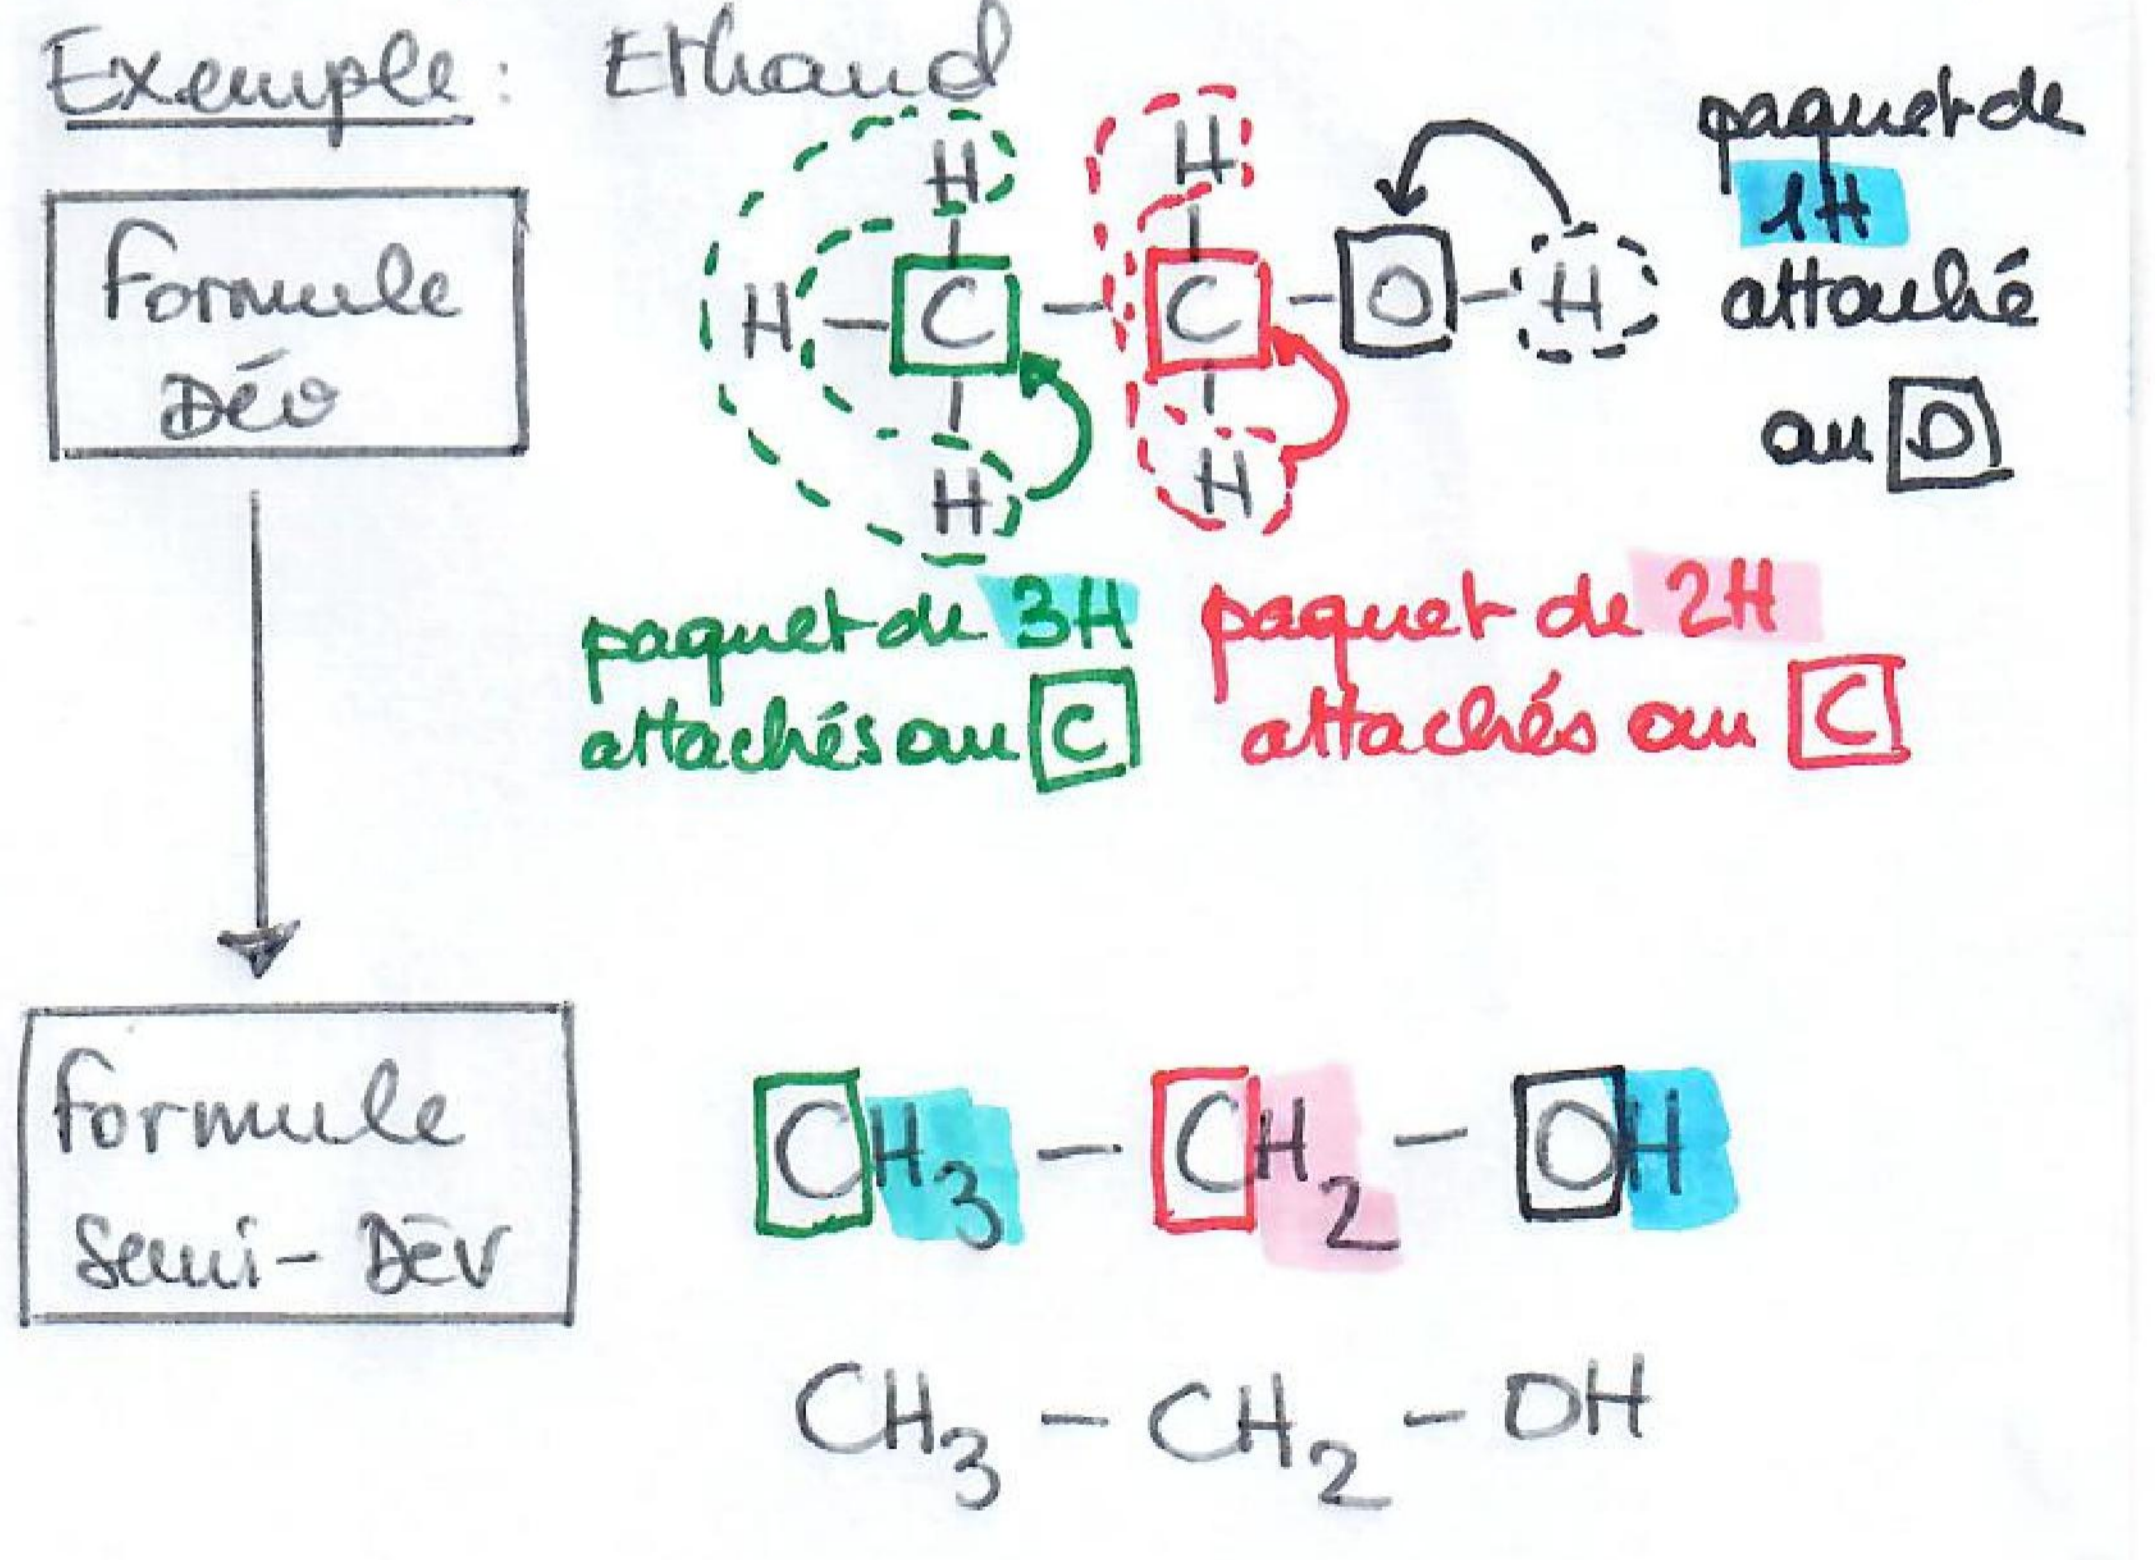 Exemple : Ethanol
Formule
Dév
H H
H – C – C – O – H
H H
paquet de
1H
attaché
au O
paquet de 3H
attachés au C
paquet de 2H
attachés au C
Formule
Semi-Dév
CH3 – CH2 – OH
CH3 – CH2 – OH